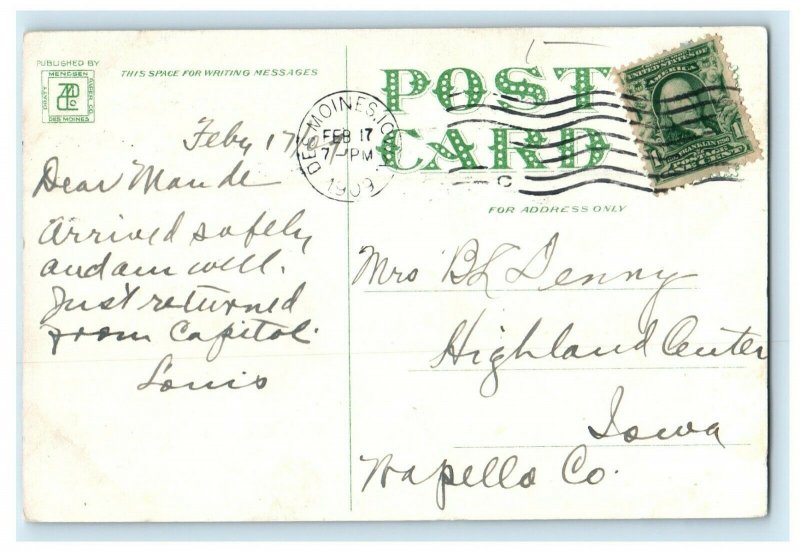 PUBLISHED BY
DES MOINES
THIS SPACE FOR WRITING MESSAGES
POST
CARD
FOR ADDRESS ONLY
DES MOINES, IOWA
FEB 17
7 - PM
1909
UNITED STATES OF
AMERICA
FRANKLIN
1
ONE CENT
Feby 17
Dear Maude
Arrived safely
and am well.
Just returned
from Capitol.
Louis
Mrs B L Denny
Highland Center
Iowa
Wapello Co.